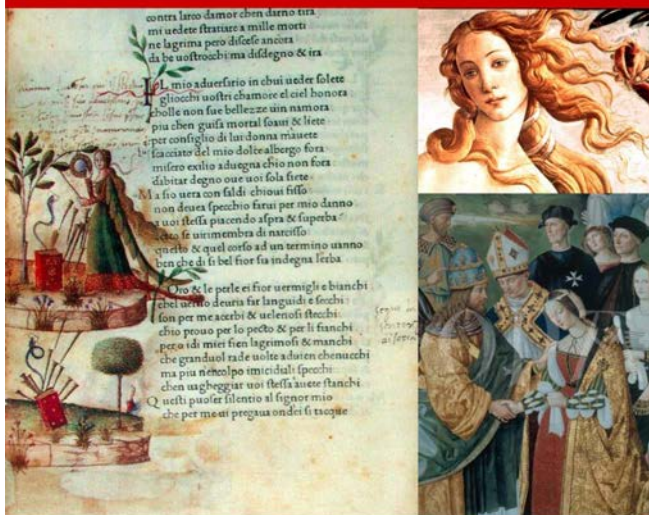 contra larco damor chen darno tira
mi uedete stratiare a mille morti
ne lagrima pero discese ancora
da be uostrocchi ma disdegno & ira
IL mio aduersario in chui ueder solete
gliocchi uostri chamore el ciel honora
cholle non sue bellezze uin namora
piu chen guisa mortal soaui & liete
per consiglio di lui donna mauete
scacciato del mio dolce albergo fora
misero exilio aduegna chio non fora
dabitar degno oue uoi sola siete
Ma sio uera con saldi chioui fisso
non deuea specchio farui per mio danno
a uoi stessa piacendo aspra & superba
se uirimembra di narcisso
questo & quel corso ad un termino uanno
ben che di si bel fior sia indegna lerba
Oro & le perle ei fior uermigli e bianchi
chel uerno deuria far languidi e secchi
son per me acerbi & uelenosi stecchi
chio prouo per lo pecto & per li fianchi
pero idi miei fien lagrimosi & manchi
che granduol rade uolte aduien chenuecchi
ma piu nencolpo imicidiali specchi
chen uagheggiar uoi stessa auete stanchi
Questi puoser silentio al signor mio
che per me ui pregaua ondei si tacque